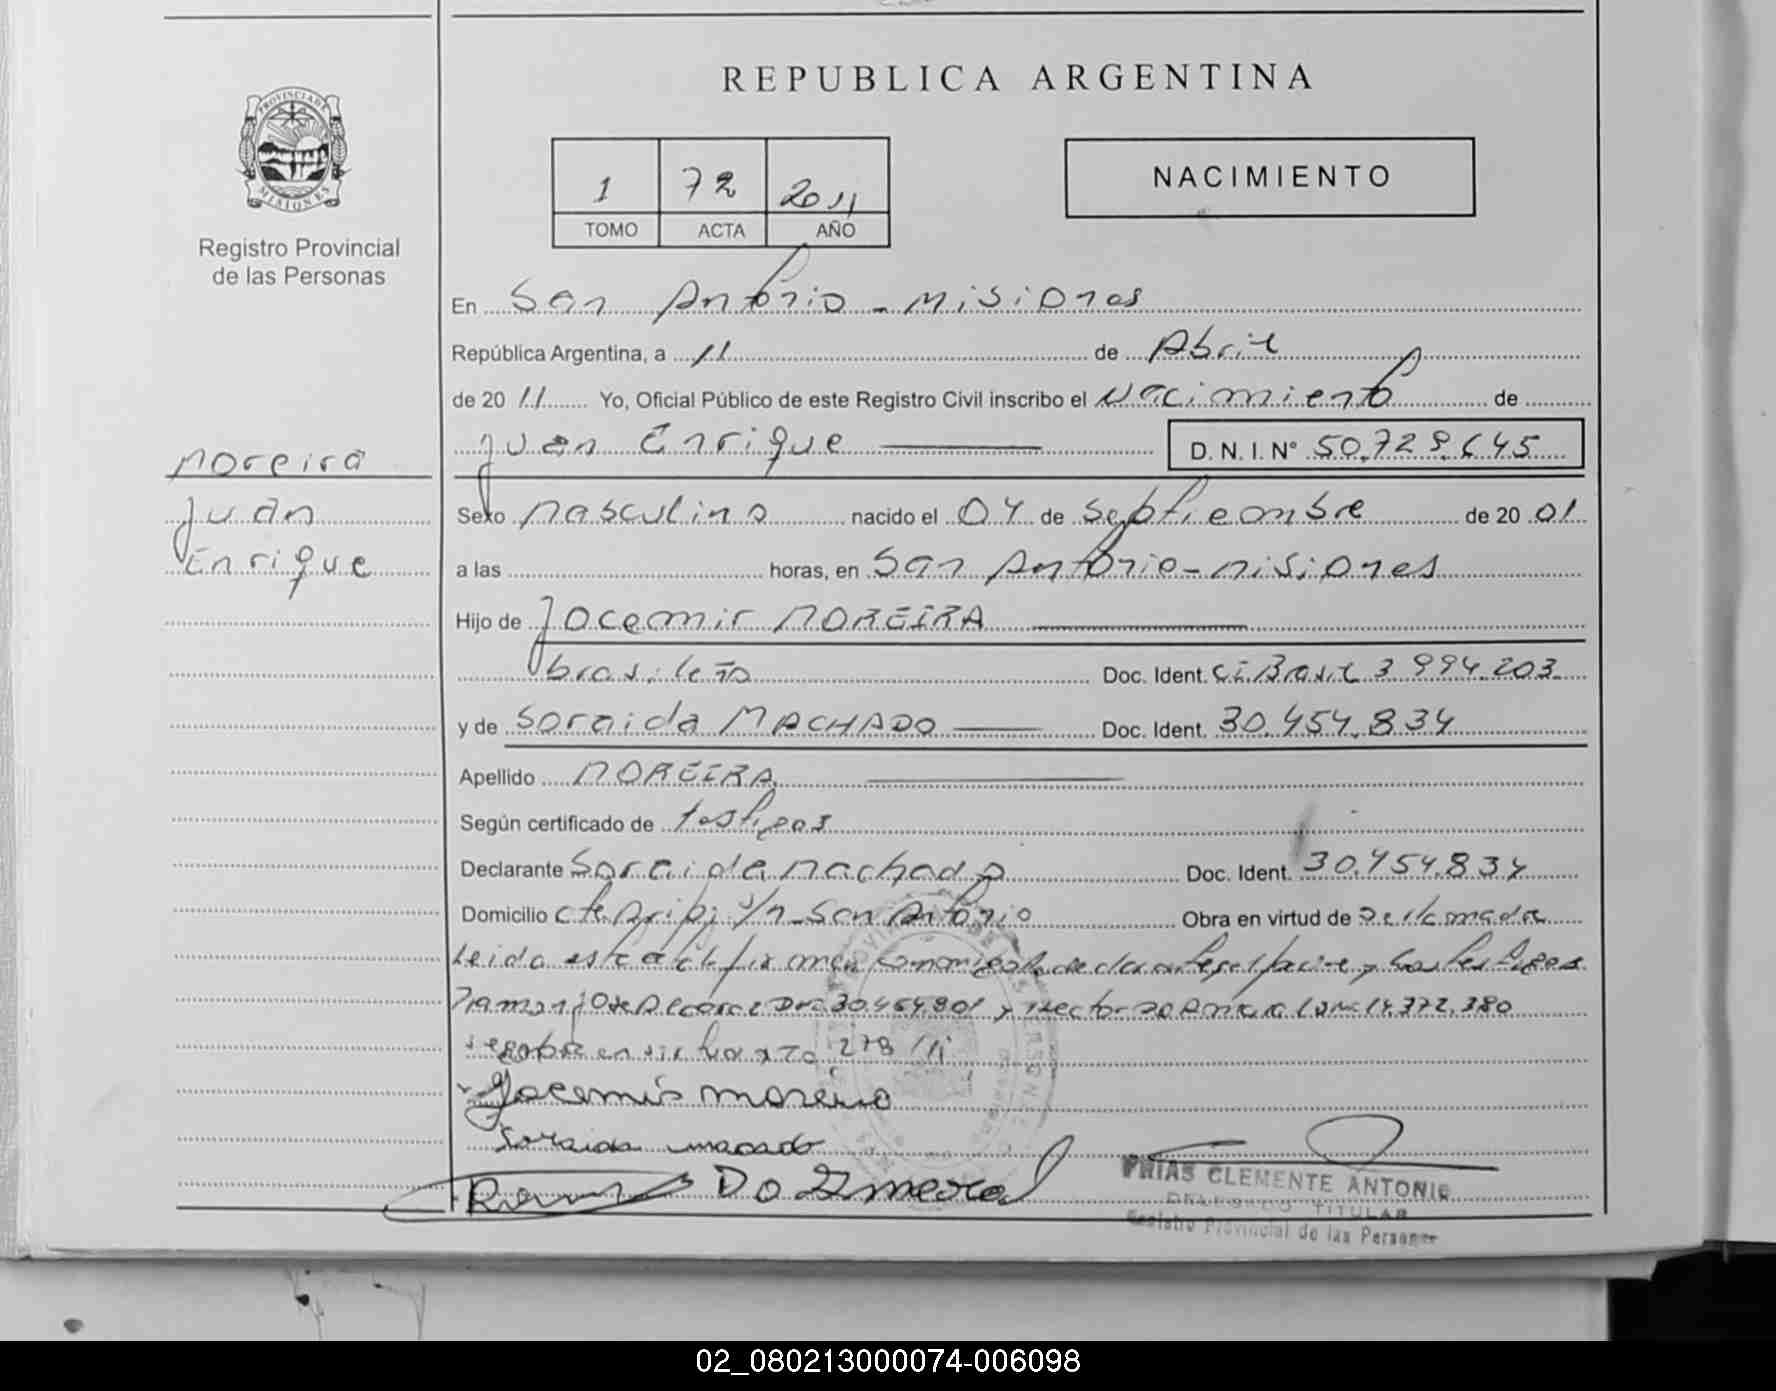 REPUBLICA ARGENTINA
PROVINCIA DE
MISIONES
Registro Provincial
de las Personas
1 72 2011
TOMO ACTA AÑO
NACIMIENTO
En San Antonio - Misiones
República Argentina, a 11 de Abril
de 20 11 Yo, Oficial Público de este Registro Civil inscribo el Nacimiento de
Juan Enrique D. N. I. N° 50.729.645
Moreira
Juan
Enrique
Sexo Masculino nacido el 04 de Septiembre de 20 01
a las horas, en San Antonio - Misiones
Hijo de Jocemir MOREIRA
brasileño Doc. Ident. C.I. Brasil 3.994.203
y de Soraida MACHADO Doc. Ident. 30.454.834
Apellido MOREIRA
Según certificado de testigos
Declarante Soraida Machado Doc. Ident. 30.454.834
Domicilio S/n - San Antonio Obra en virtud de
Leida esta acta firman y los testigos
30.454.801 y Hector 14.372.380
278/11
Jocemir moreira
Soraida macado
FRIAS CLEMENTE ANTONIO
DELEGADO TITULAR
Registro Provincial de las Personas
02_080213000074-006098